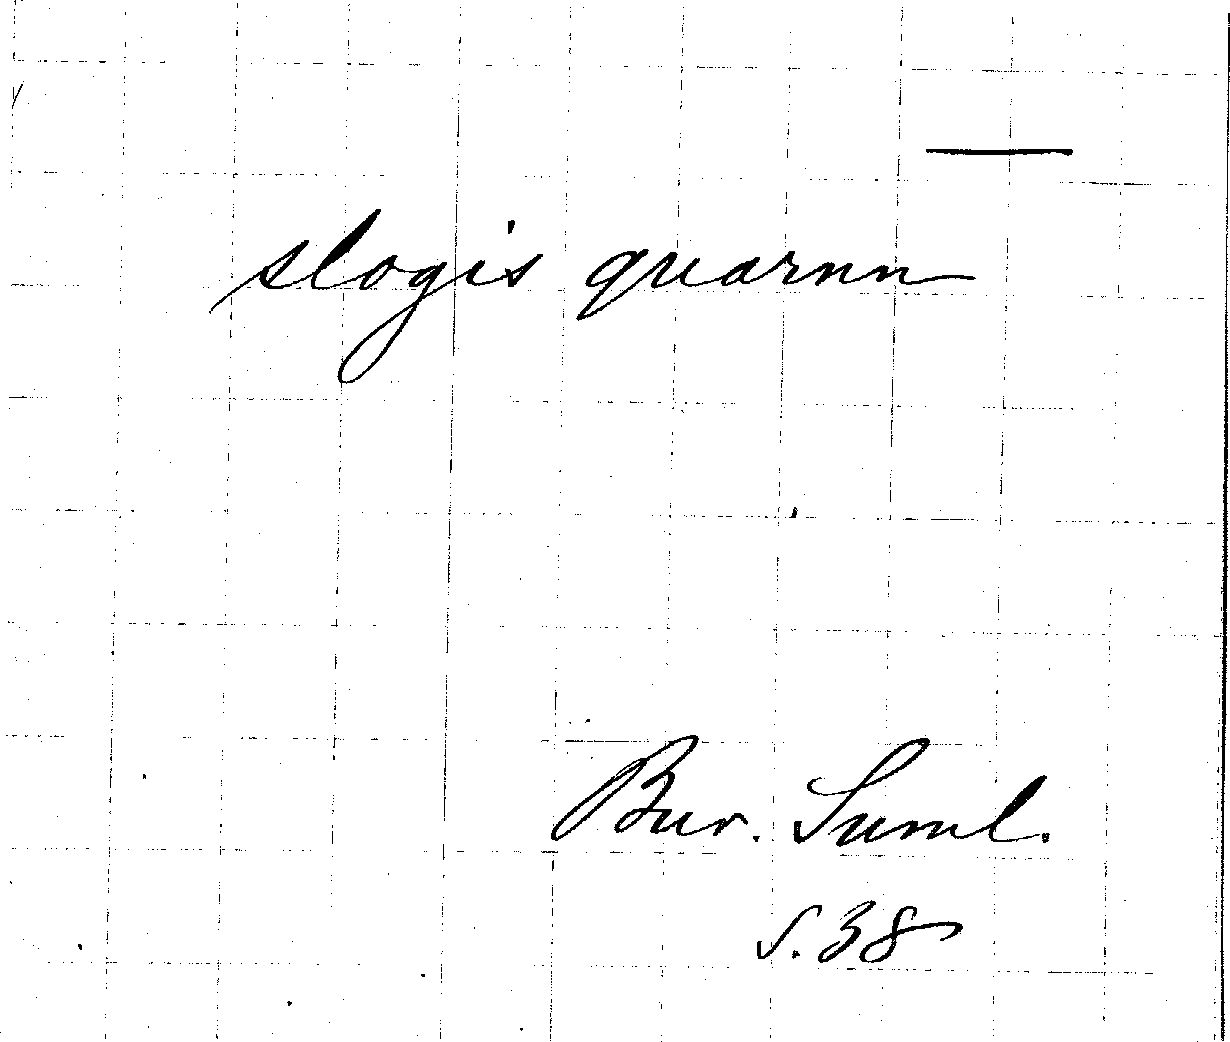 —
slogis quarnn
Bur. Suml.
s. 38